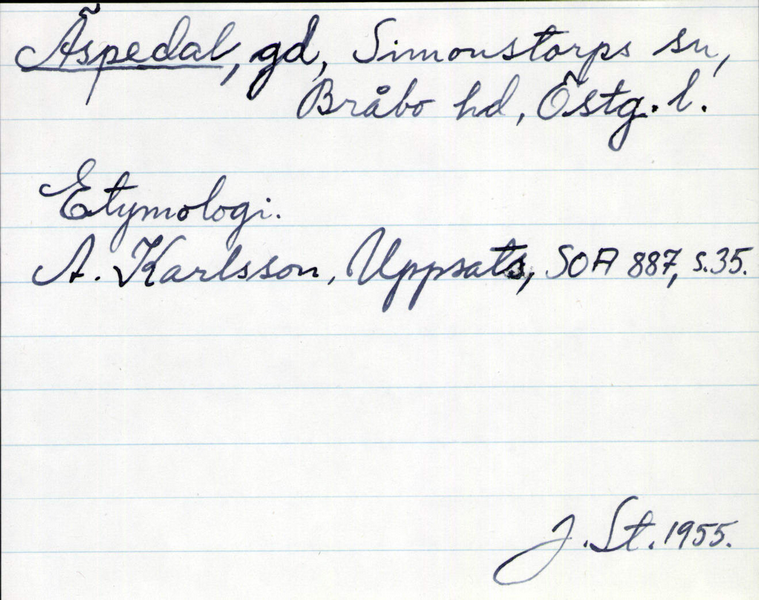 Äspedal, gd, Simonstorps sn,
Bråbo hd, Östg. l.
Etymologi.
A. Karlsson, Uppsats, SOA 887, s.35.
J. St. 1955.